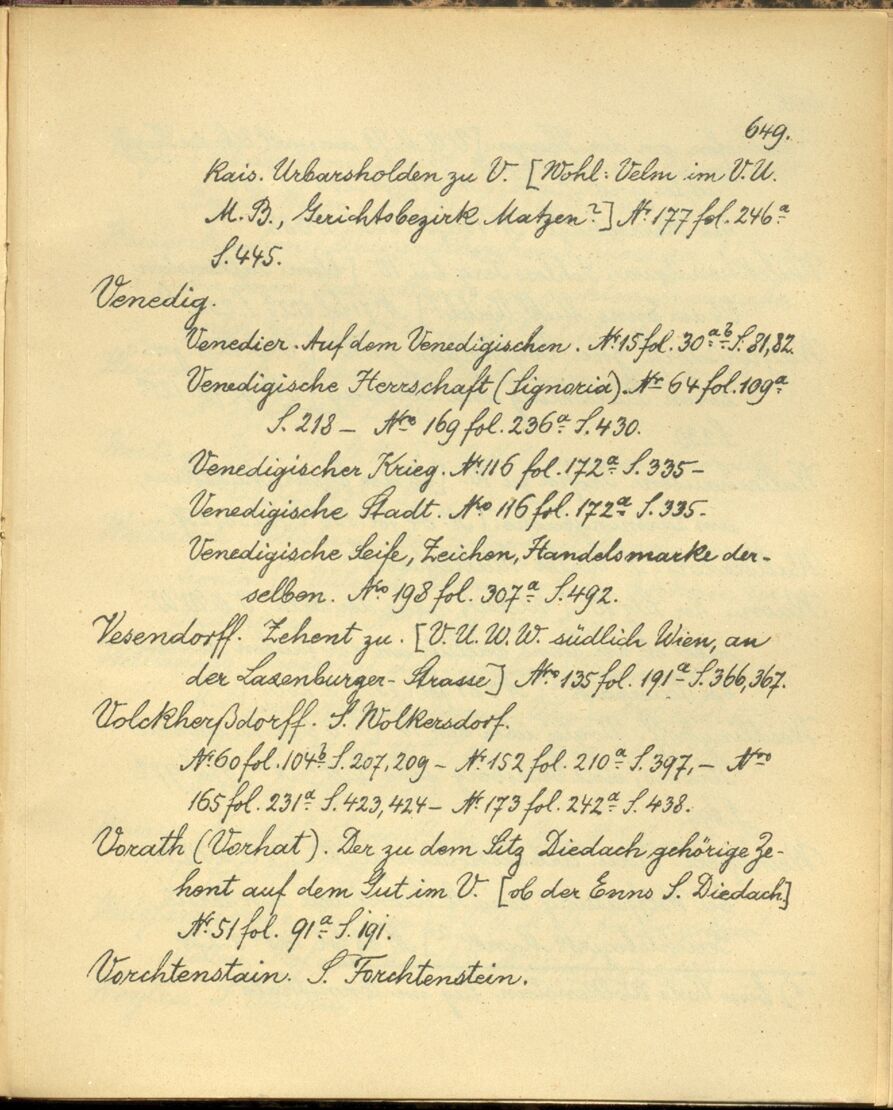 649.
Kais. Urbarsholden zu V. [Wohl: Velm im V.U.
M.B., Gerichtsbezirk Matzen?] Nr. 177 fol. 246a
S. 445.
Venedig.
Venedier. Auf dem Venedigischen. Nr. 15 fol. 30a b S. 81, 82.
Venedigische Herrschaft (Signoria). Nr 64 fol. 109a
S. 218 – Nro 169 fol. 236a S. 430.
Venedigischer Krieg. Nr. 116 fol. 172a S. 335–
Venedigische Stadt. Nro 116 fol. 172a S. 335.
Venedigische Seife, Zeichen, Handelsmarke der-
selben. Nro 198 fol. 307a S. 492.
Vesendorff. Zehent zu. [V.U.W.W. südlich Wien, an
der Laxenburger-Strasse] Nro 135 fol. 191a S. 366, 367.
Volckherßdorff. S. Wolkersdorf.
Nr. 60 fol. 104b S. 207, 209 – Nr. 152 fol. 210a S. 397, – Nro
165 fol. 231a S. 423, 424 – Nr. 173 fol. 242a S. 438.
Vorath (Vorhat). Der zu dem Sitz Diedach gehörige Ze-
hent auf dem Gut im V. [ob der Enns S. Diedach]
Nr. 51 fol. 91a S. 191.
Vorchtenstain. S. Forchtenstein.